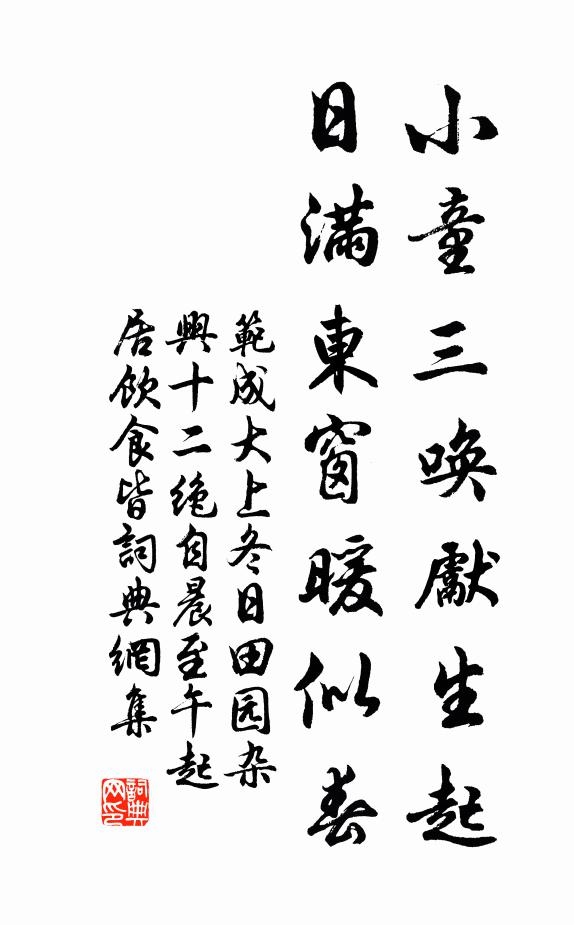 小童三唤獻生起
日滿東窗暖似春
範成大上冬日田园杂
興十二绝自晨至午起
居飲食皆詞典網集
詞典
网印